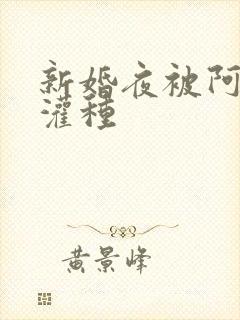 新婚夜被阿
灌种
黄景峰